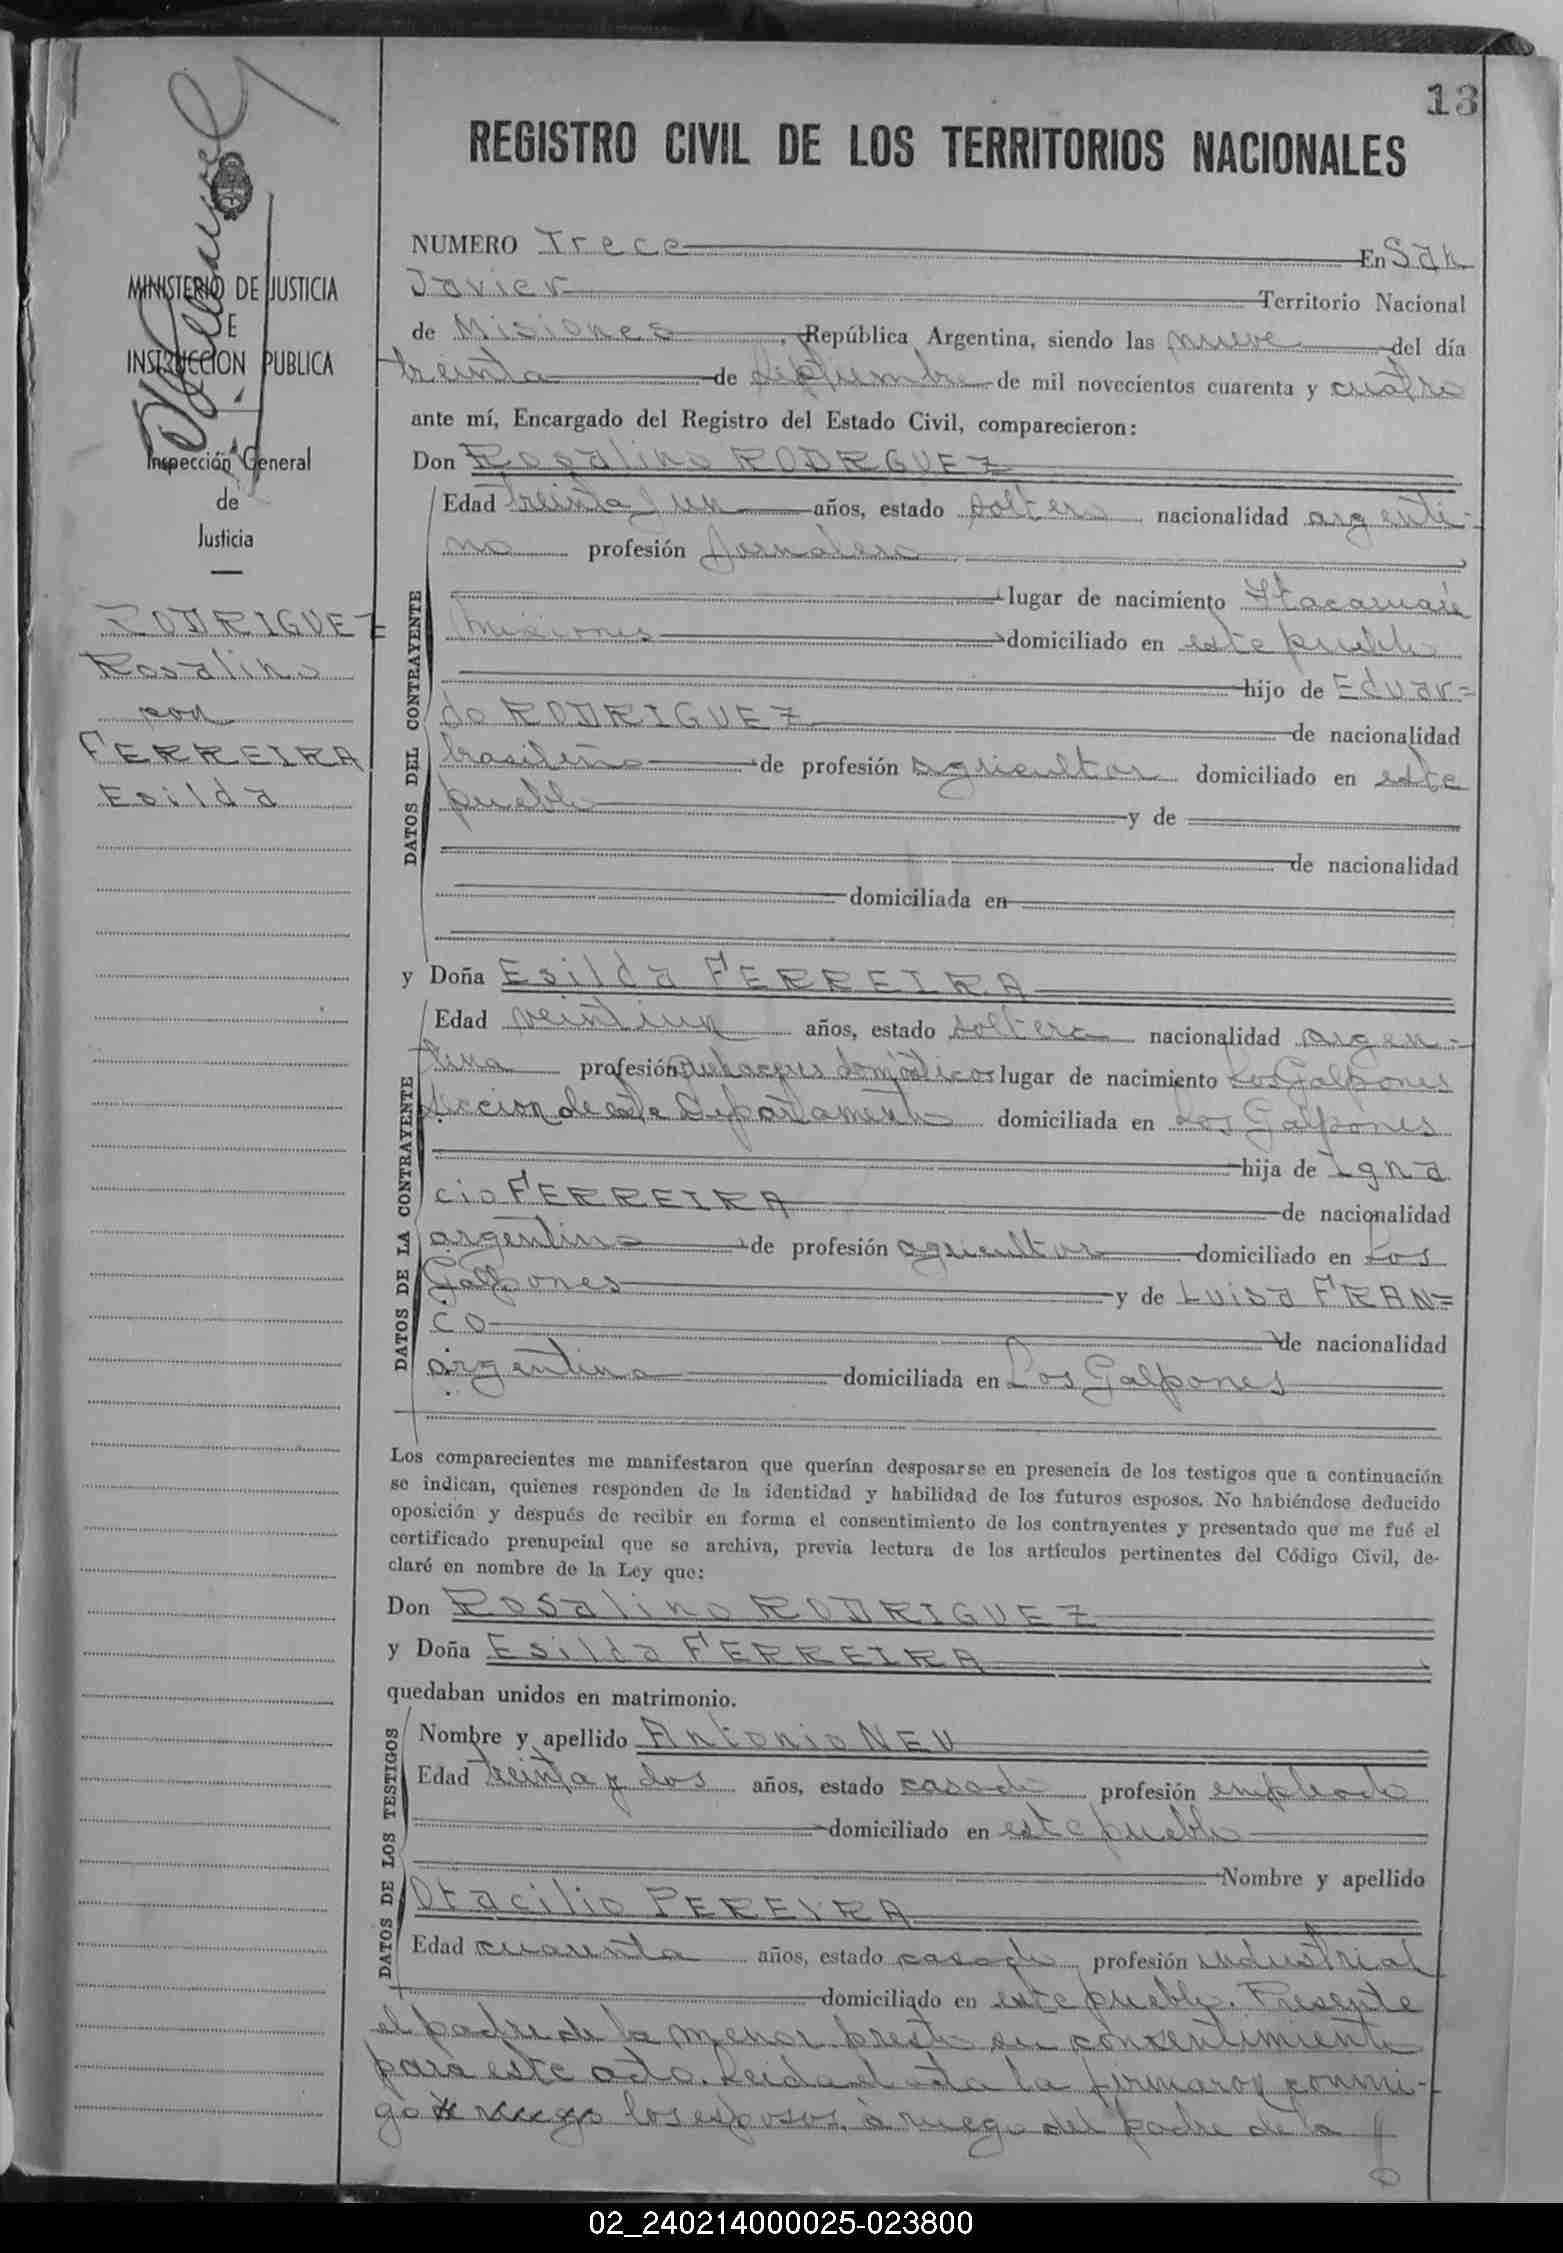 13
REGISTRO CIVIL DE LOS TERRITORIOS NACIONALES
MINISTERIO DE JUSTICIA
E
INSTRUCCION PUBLICA
Inspección General
de
Justicia
RODRIGUEZ
Rosalino
con
FERREIRA
Esilda
NUMERO Trece En San
Javier Territorio Nacional
de Misiones, República Argentina, siendo las nueve del día
treinta de Septiembre de mil novecientos cuarenta y cuatro
ante mí, Encargado del Registro del Estado Civil, comparecieron:
Don Rosalino RODRGUEZ
DATOS DEL CONTRAYENTE
Edad treinta y un años, estado soltero nacionalidad argenti-
no profesión Jornalero
lugar de nacimiento Itacaruaré
Misiones domiciliado en este pueblo
hijo de Eduar=
do RODRIGUEZ de nacionalidad
brasileño de profesión agricultor domiciliado en este
pueblo y de
de nacionalidad
domiciliada en
y Doña Esilda FERREIRA
DATOS DE LA CONTRAYENTE
Edad veintiun años, estado soltera nacionalidad argen-
tina profesión Quehaceres domésticos lugar de nacimiento Los Galpones
sección de este Departamento domiciliada en Los Galpones
hija de Igna
cio FERREIRA de nacionalidad
argentino de profesión agricultor domiciliado en Los
Galpones y de Luisa FRAN=
CO de nacionalidad
argentina domiciliada en Los Galpones
Los comparecientes me manifestaron que querían desposarse en presencia de los testigos que a continuación
se indican, quienes responden de la identidad y habilidad de los futuros esposos. No habiéndose deducido
oposición y después de recibir en forma el consentimiento de los contrayentes y presentado que me fué el
certificado prenupcial que se archiva, previa lectura de los artículos pertinentes del Código Civil, de-
claré en nombre de la Ley que:
Don Rosalino RODRIGUEZ
y Doña Esilda FERREIRA
quedaban unidos en matrimonio.
DATOS DE LOS TESTIGOS
Nombre y apellido Antonio NEU
Edad treinta y dos años, estado casado profesión empleado
domiciliado en este pueblo
Nombre y apellido
Otacilio PEREYRA
Edad cuarenta años, estado casado profesión industrial
domiciliado en este pueblo. Presente
el padre de la menor presta su consentimiento
para este acto. Leida el acta la firmaron conmi-
go los esposos, a ruego del padre de la
02_240214000025-023800